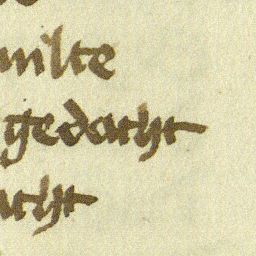 milte
gedacht
acht